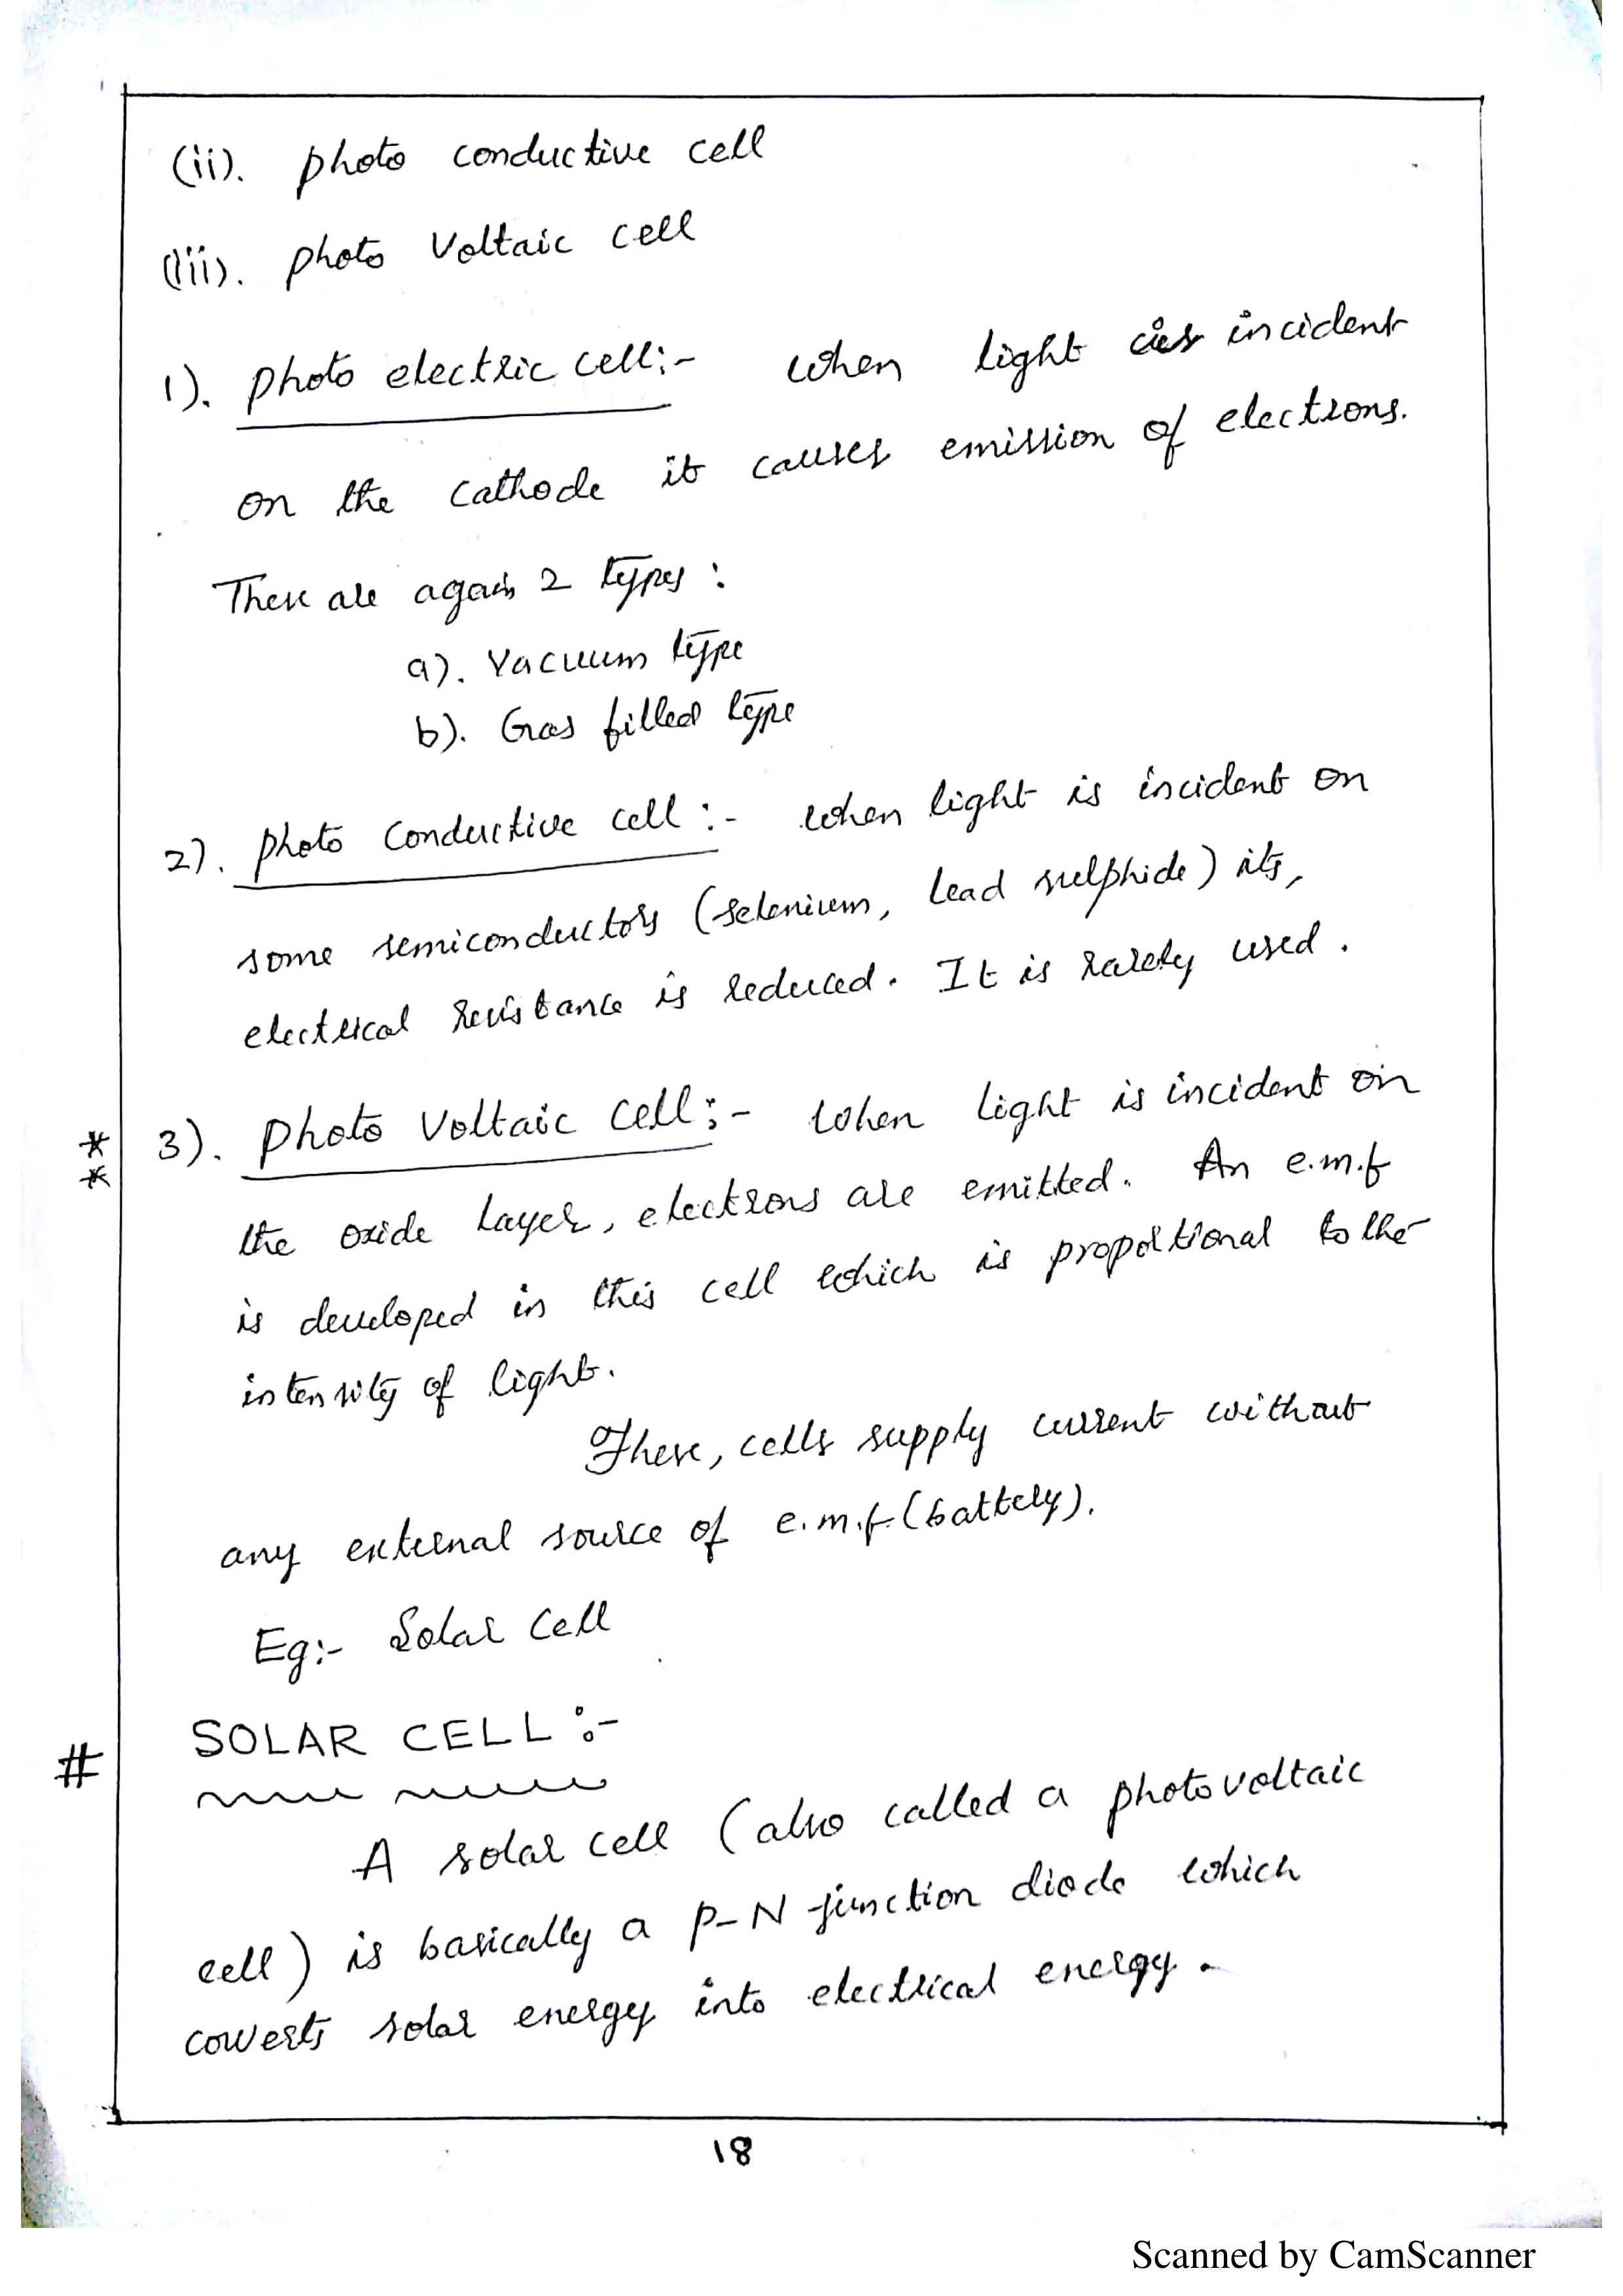 (ii). photo conductive cell
(iii). photo Voltaic cell
1). photo electric cell:- when light is incident
on the cathode it causes emission of electrons.
There are again 2 types :
a). Vacuum type
b). Gas filled type
2). photo conductive cell :- when light is incident on
some semiconductors (selenium, lead sulphide) its,
electrical resistance is reduced. It is rarely used.
* * 3). photo Voltaic cell:- when light is incident on
the oxide layer, electrons are emitted. An e.m.f
is developed in this cell which is proportional to the
intensity of light.
There, cells supply current without
any external source of e.m.f (battery).
Eg:- Solar Cell
# SOLAR CELL :-
A solar cell (also called a photovoltaic
cell) is basically a P-N junction diode which
coverts solar energy into electrical energy.
18
Scanned by CamScanner